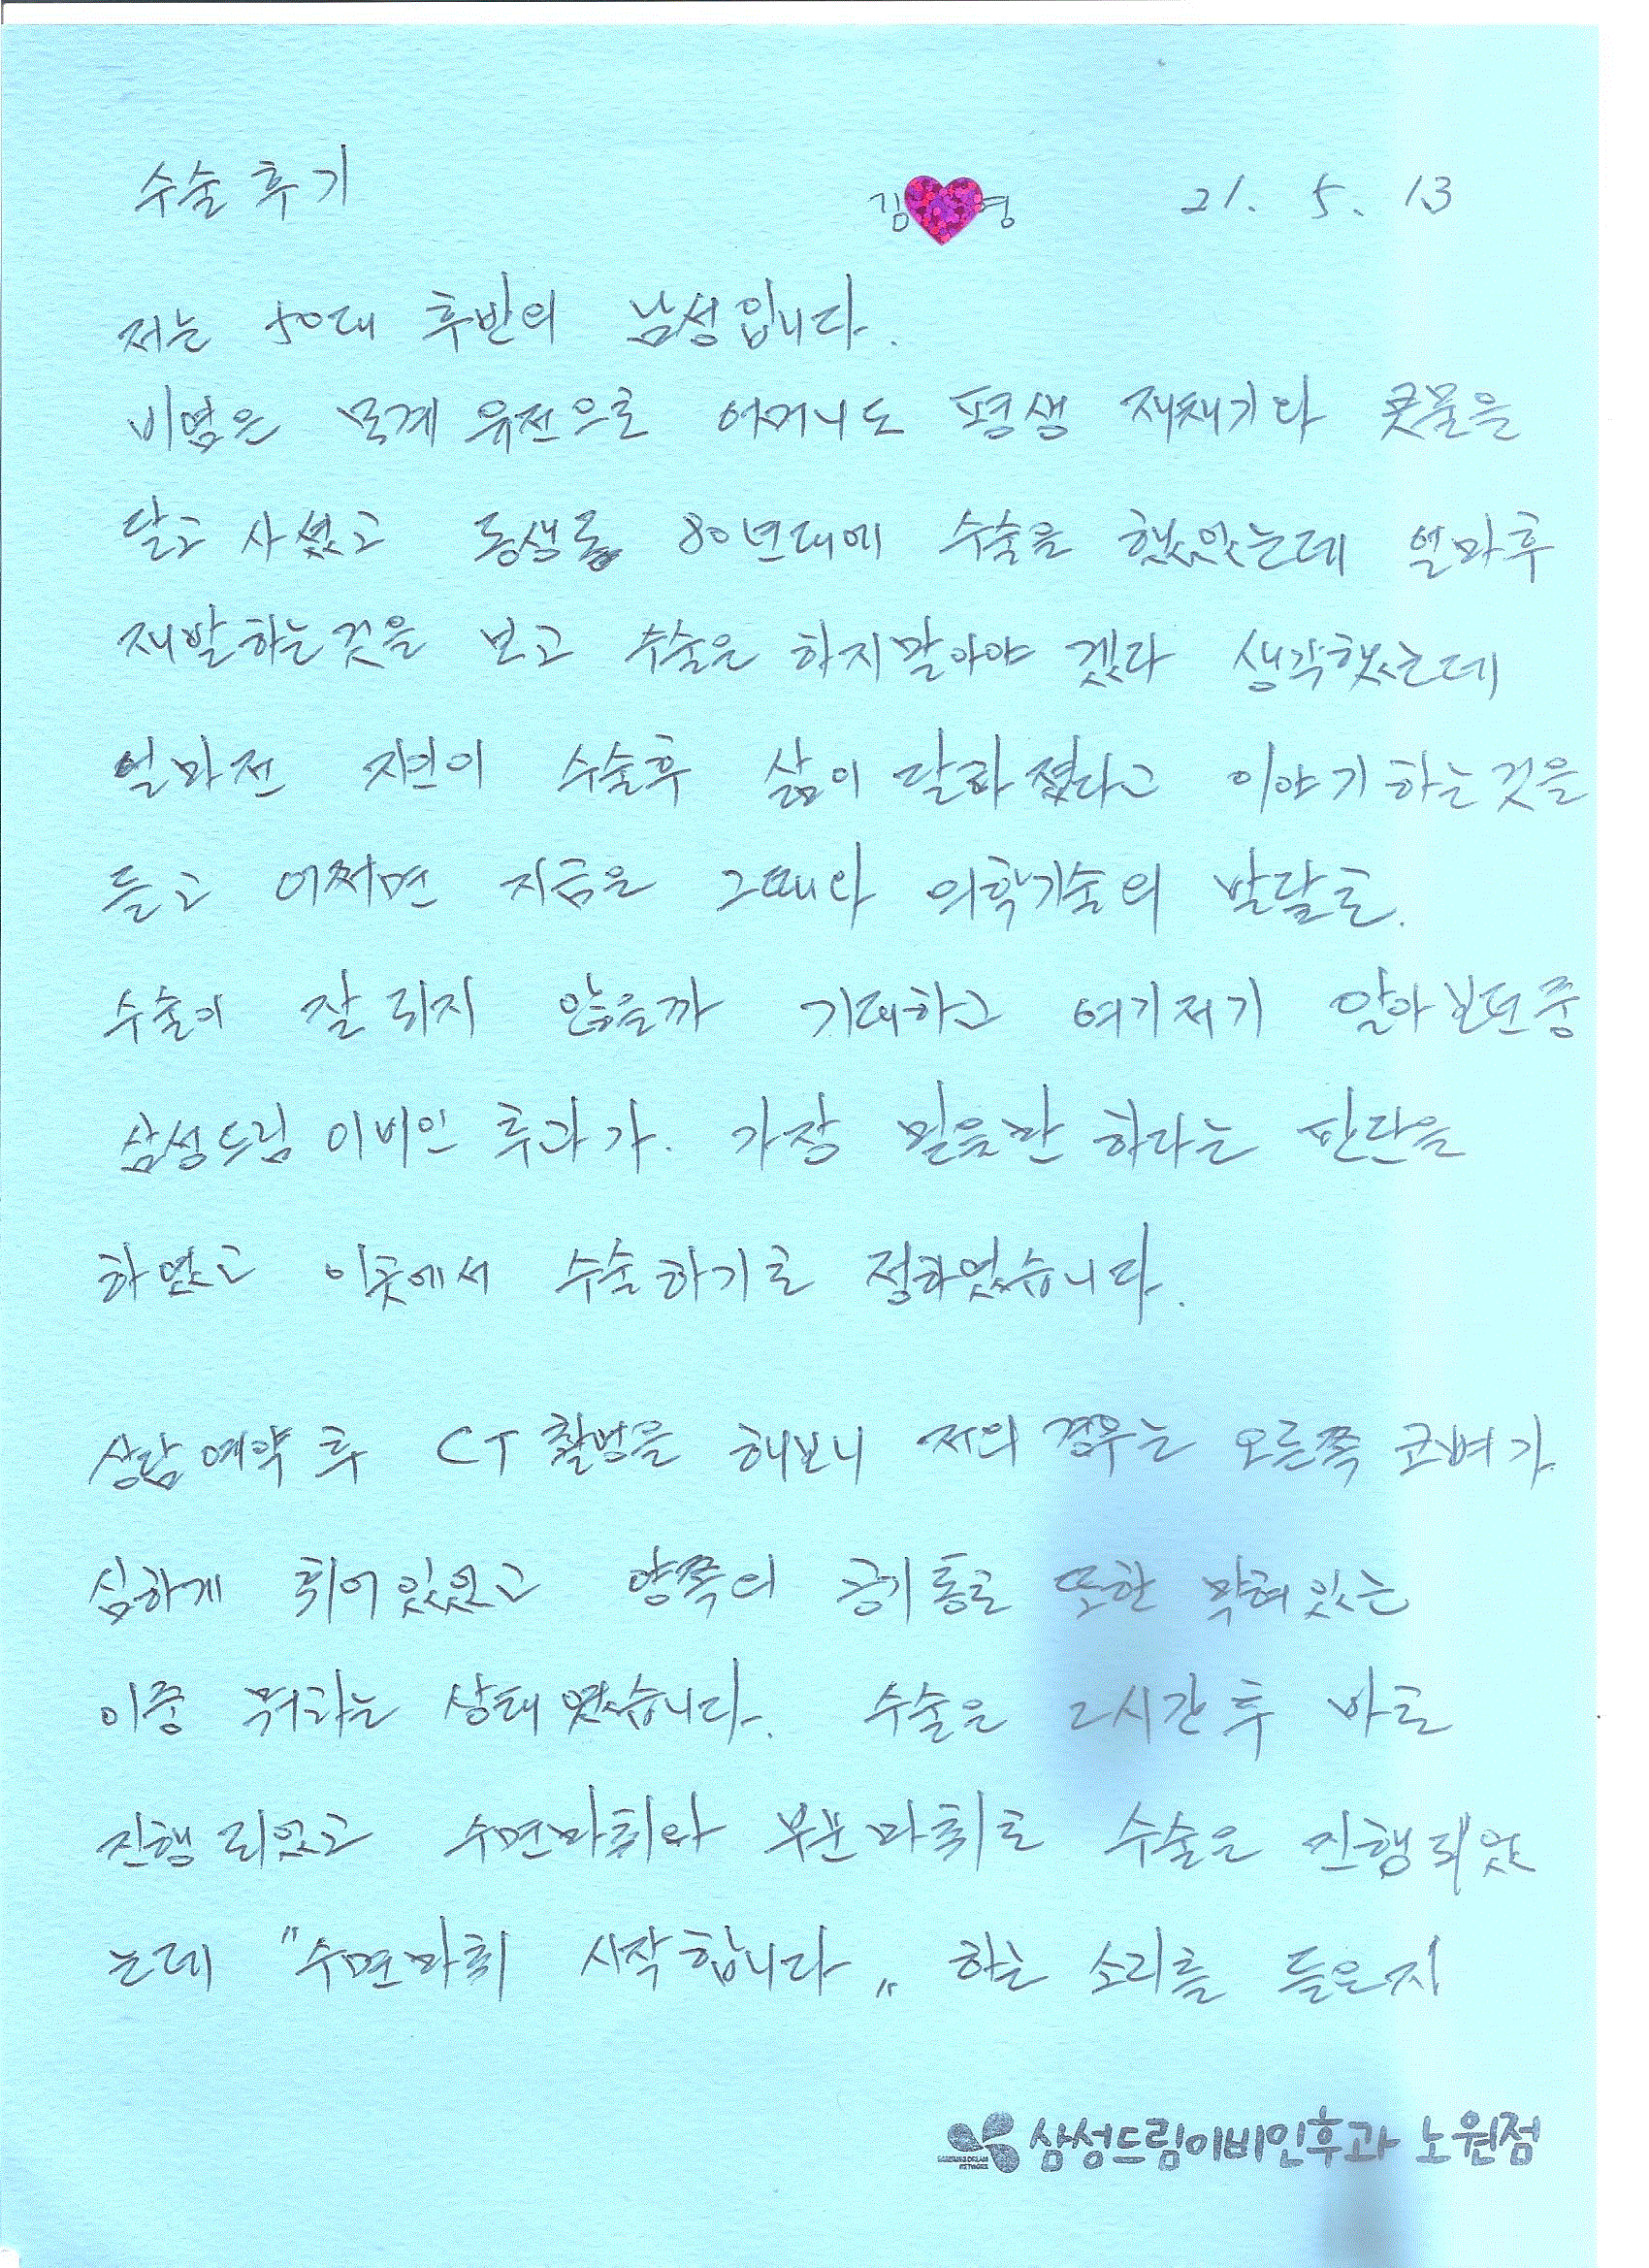 수술후기 김 영 21. 5. 13
저는 50대 후반의 남성입니다.
비염은 모계 유전으로 어머니도 평생 재채기와 콧물을
달고 사셨고 동생도 80년대에 수술을 했었는데 얼마후
재발하는것을 보고 수술은 하지말아야 겠다 생각했는데
얼마전 지인이 수술후 삶이 달라졌다고 이야기하는것을
듣고 어쩌면 지금은 그때와 의학기술의 발달로.
수술이 잘 되지 않을까 기대하고 여기저기 알아보던중
삼성드림 이비인 후과가. 가장 믿을만 하다는 판단을
하였고 이곳에서 수술하기로 정하였습니다.
상담예약 후 CT촬영을 해보니 저의 경우는 오른쪽 코뼈가
심하게 휘어있었고 양쪽의 공기통로 또한 막혀있는
이중 뭐라는 상태였습니다. 수술은 2시간후 바로
진행되었고 수면마취와 부분마취로 수술은 진행되었
는데 "수면마취 시작합니다" 하는 소리를 들은지
삼성드림이비인후과 노원점